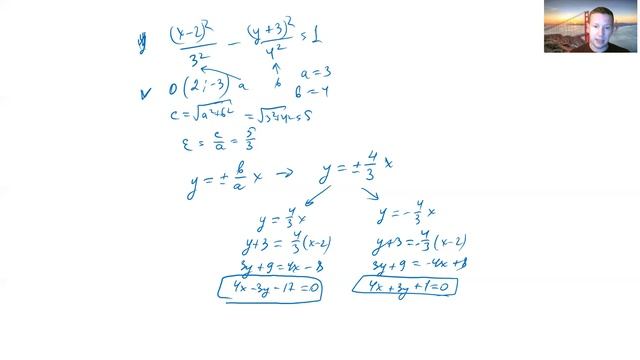 (x-2)²/3² - (y+3)²/4² = 1
a = 3
b = 4
O(2;-3) a b
c = √a²+b² = √3²+4² = 5
ε = c/a = 5/3
y = ± b/a x → y = ± 4/3 x
y = 4/3 x
y+3 = 4/3 (x-2)
3y+9 = 4x-8
4x-3y-17=0
y = -4/3 x
y+3 = -4/3 (x-2)
3y+9 = -4x+8
4x+3y+1=0